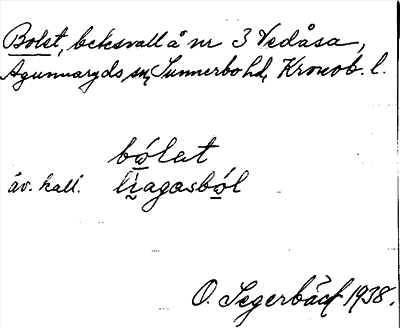 Bolet, betesvall å nr 3 Vedåsa,
Agunnaryds sn, Sunnerbo hd, Kronob. l.
bólat
äv. kall. liagasból
O. Segerbäck 1938.